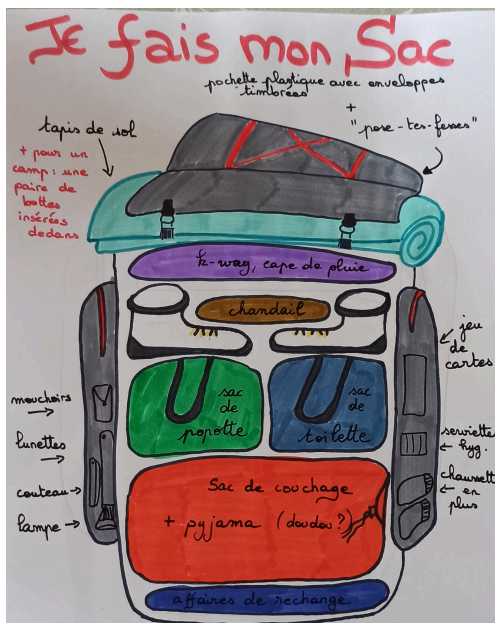 Je fais mon Sac
pochette plastique avec enveloppes
timbrées
+
"pose-tes-fesses"
tapis de sol
+ pour un
camp : une
paire de
bottes
insérées
dedans
k-way, cape de pluie
chandail
jeu
de
cartes
sac
de
popotte
sac
de
toilette
mouchoirs
lunettes
couteau
lampe
serviettes
hyg.
chaussett
en
plus
Sac de couchage
+ pyjama (doudou ?)
affaires de rechange